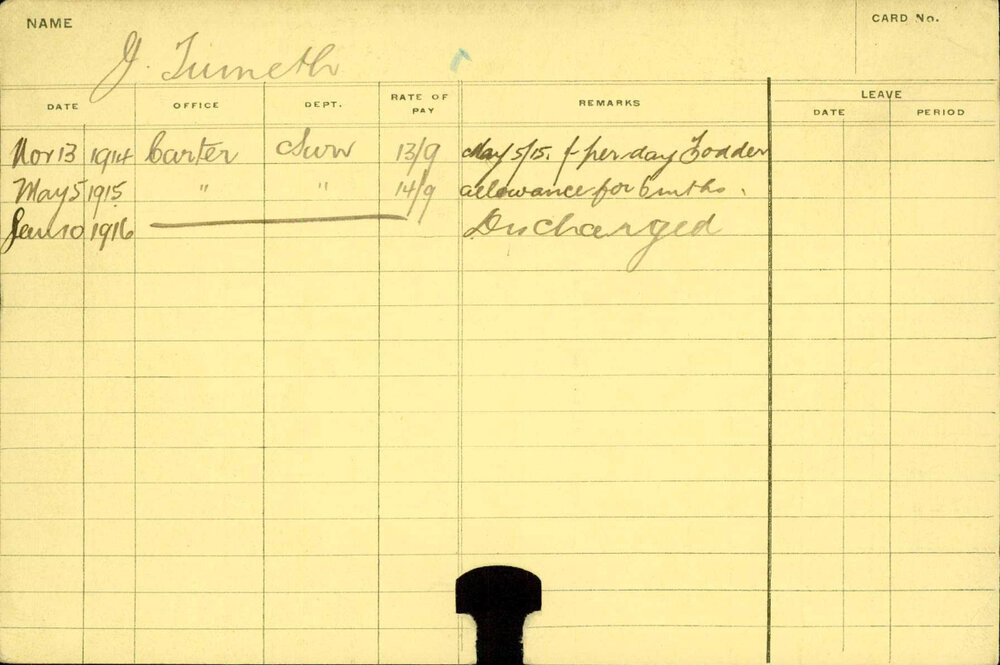 NAME
CARD No.
J. Tumeth
DATE OFFICE DEPT. RATE OF PAY REMARKS LEAVE
DATE PERIOD
Nov 13 1914 Carter Surv 13/9 May 5/15. /- per day Fodder
May 5 1915 " " 14/9 allowance for 6 mths.
Jan 10 1916 Discharged